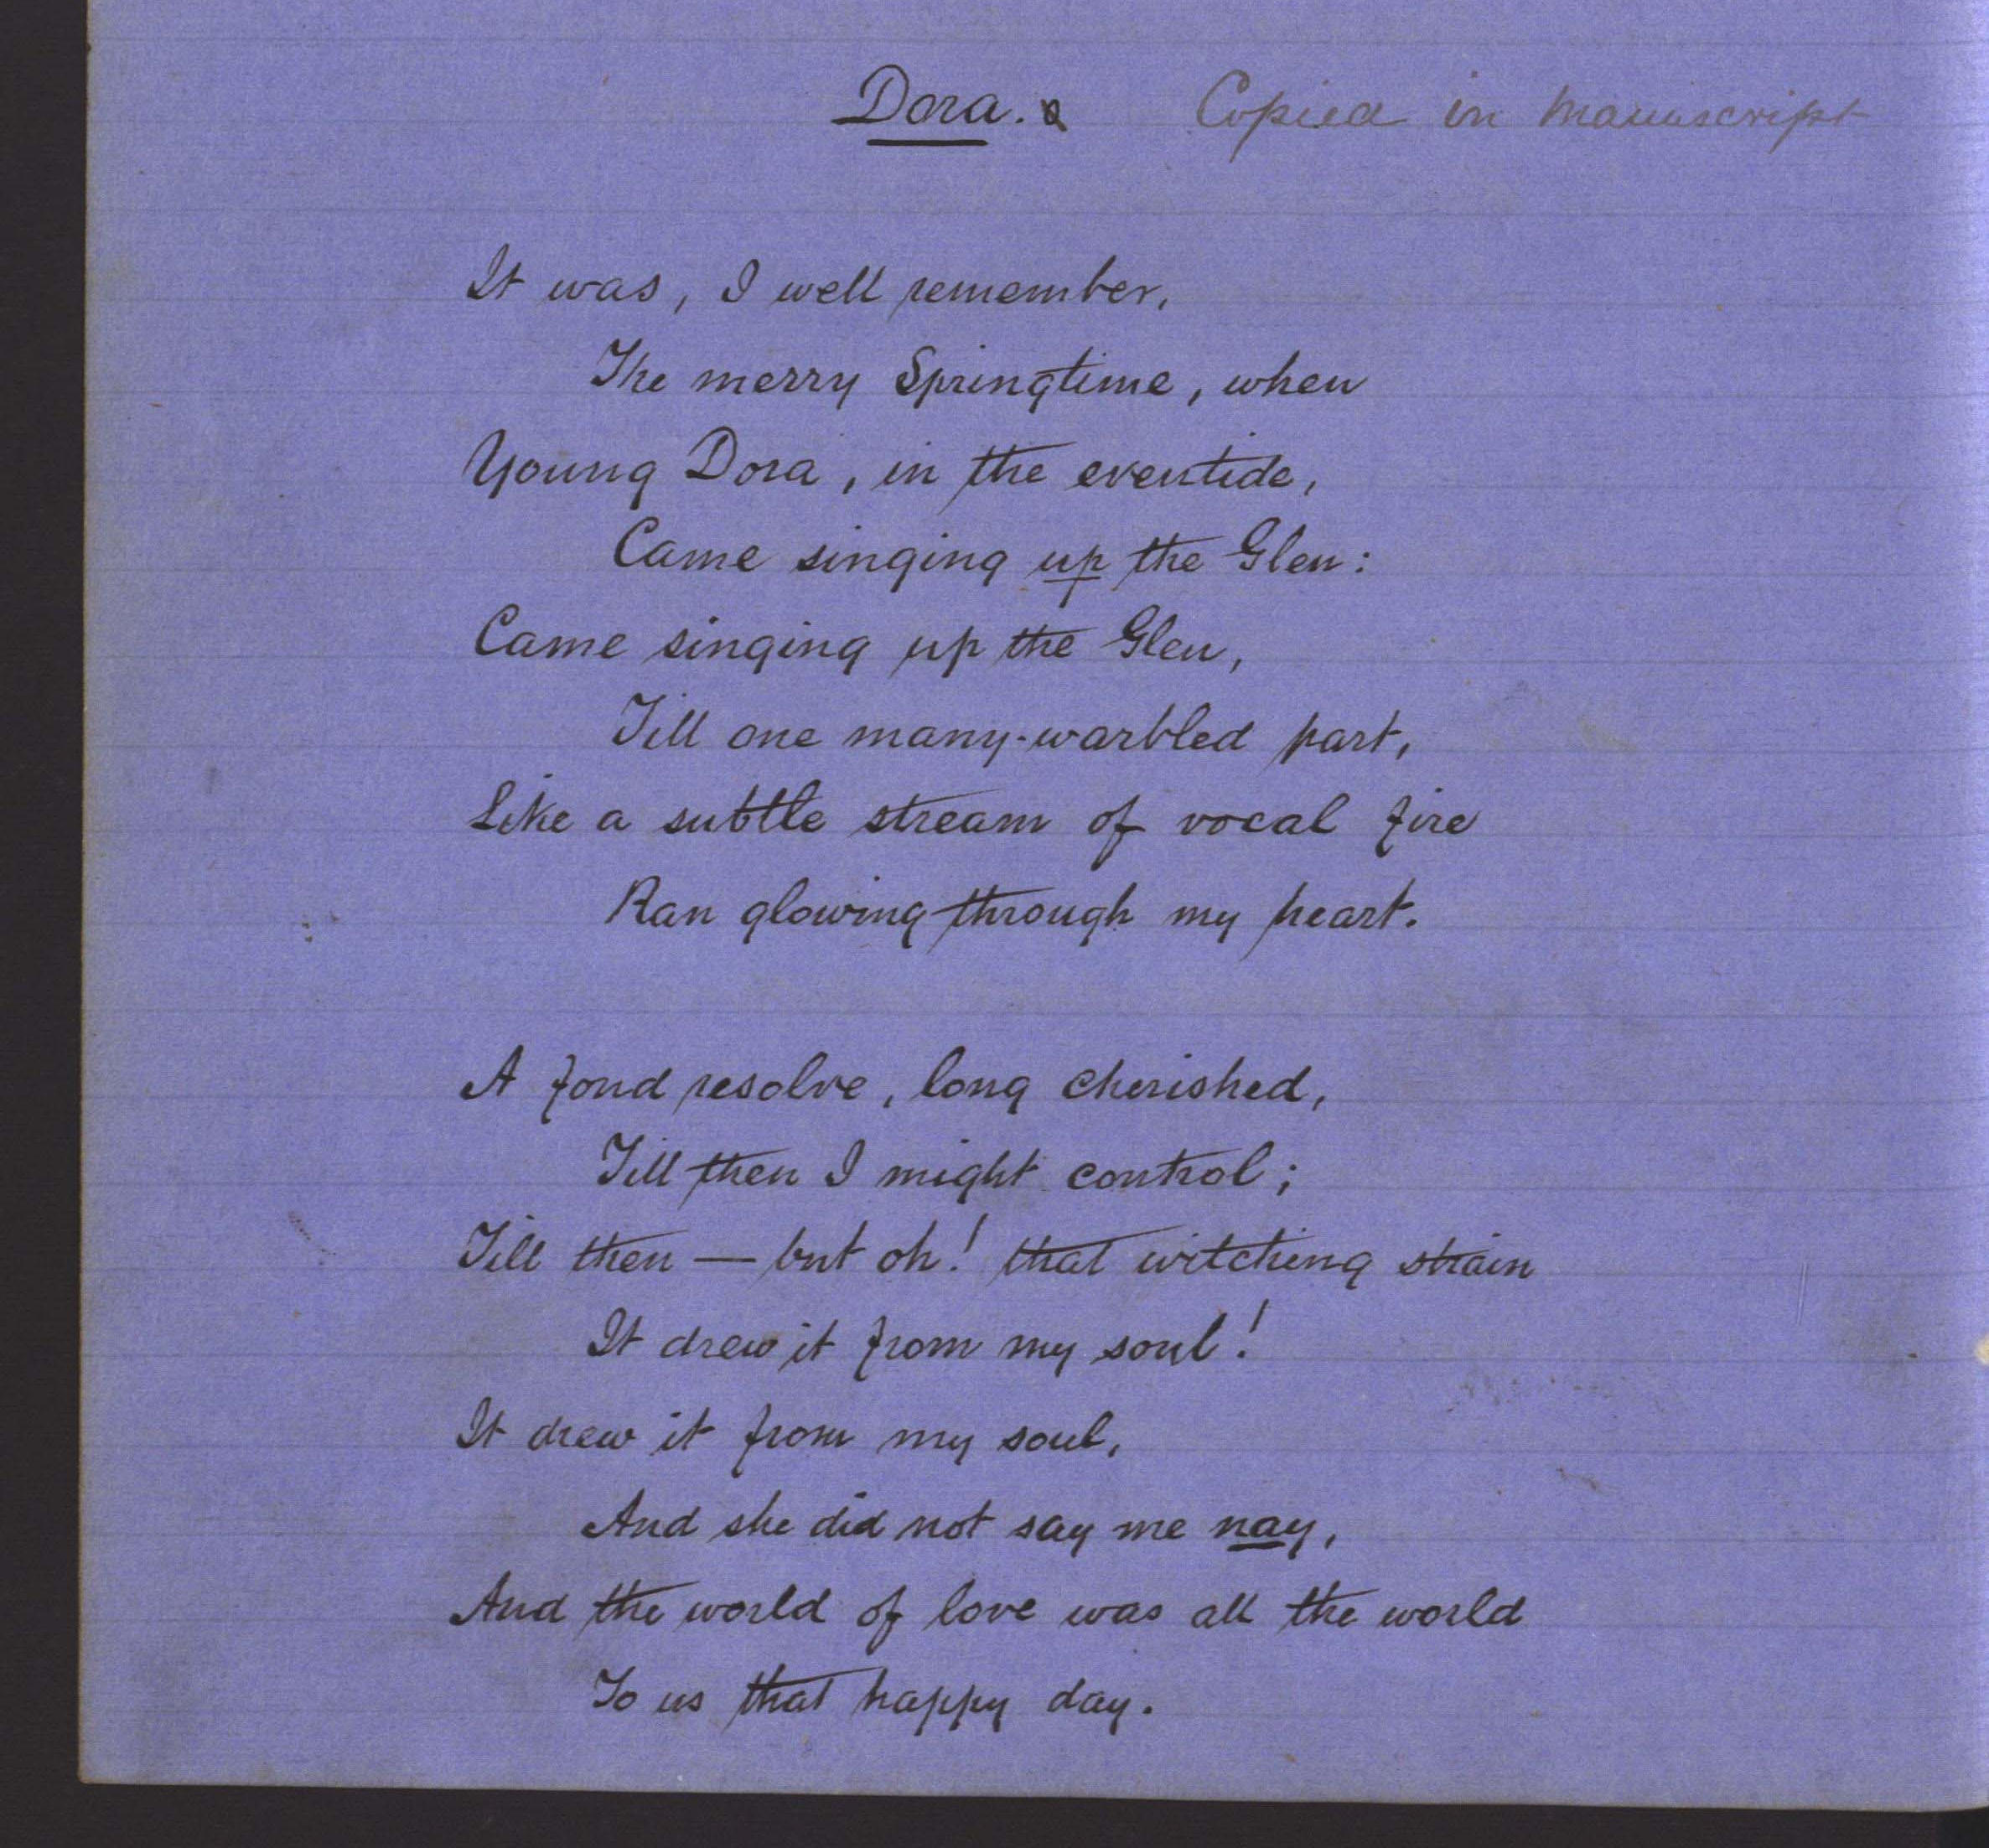 Dora. Copied in Manuscript
It was, I well remember,
The merry Springtime, when
Young Dora, in the eventide,
Came singing up the Glen:
Came singing up the Glen,
Till one many-warbled part,
Like a subtle stream of vocal fire
Ran glowing through my heart.
A fond resolve, long cherished,
Till then I might control;
Till then — but oh! that witching strain
It drew it from my soul!
It drew it from my soul,
And she did not say me nay,
And the world of love was all the world
To us that happy day.